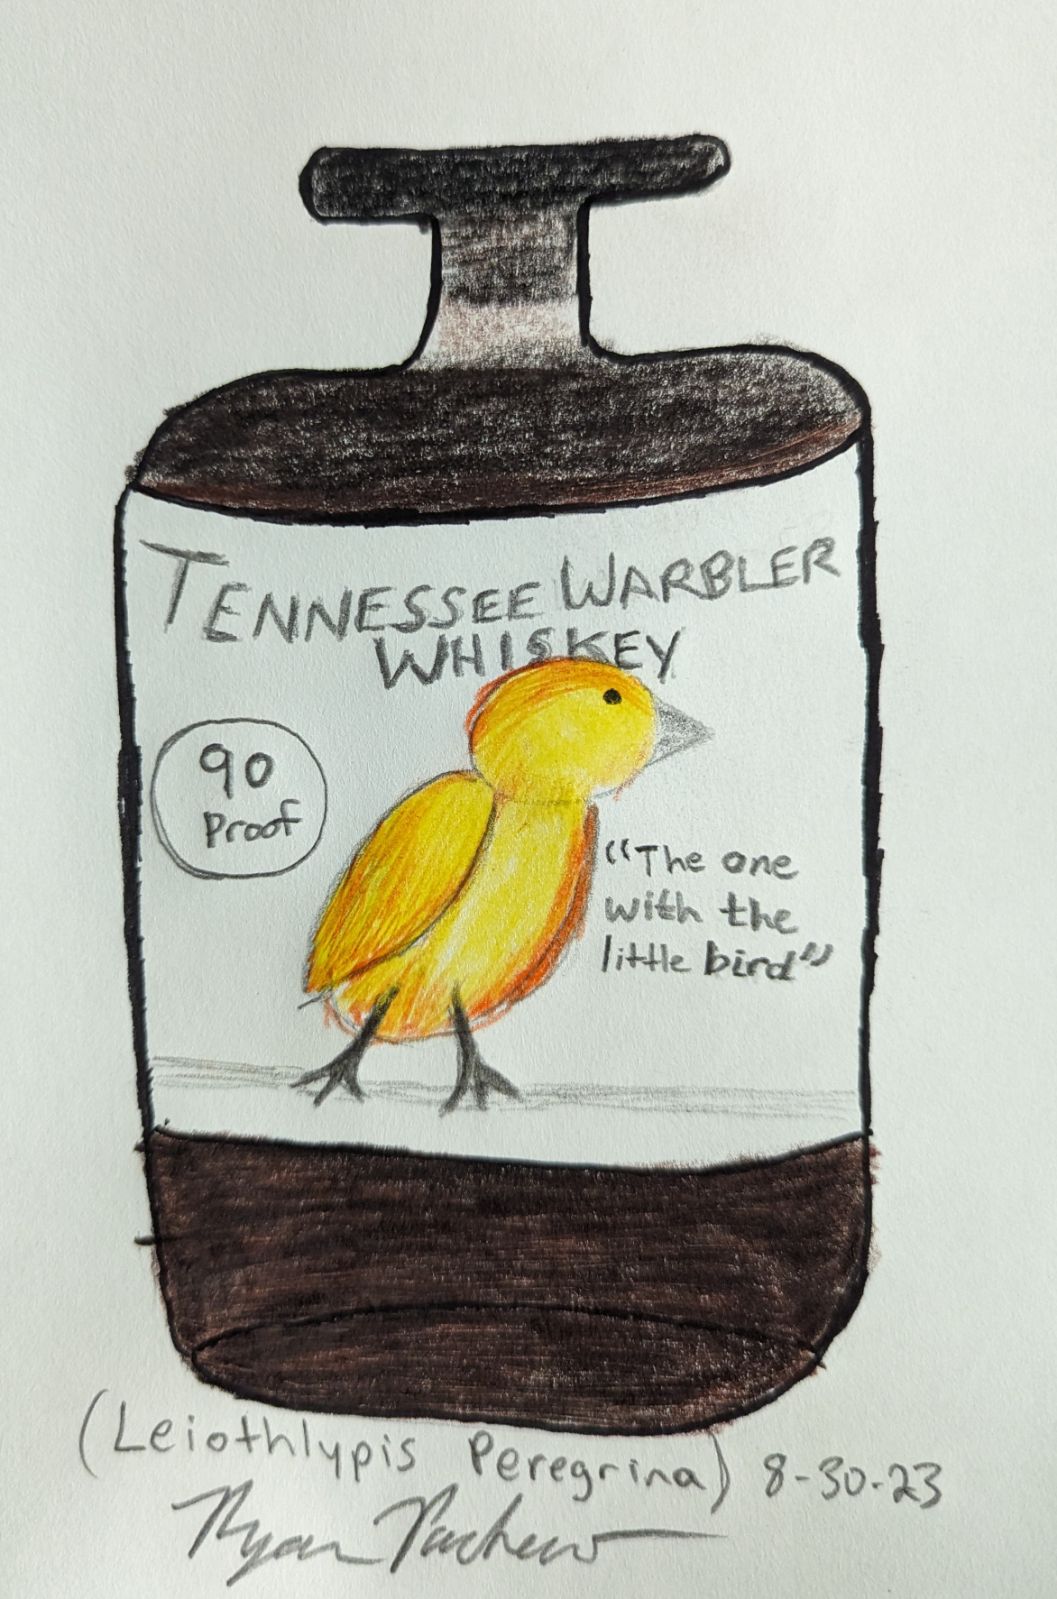 TENNESSEE WARBLER
WHISKEY
90
Proof
"The one
with the
little bird"
(Leiothlypis Peregrina) 8-30-23
Ryan